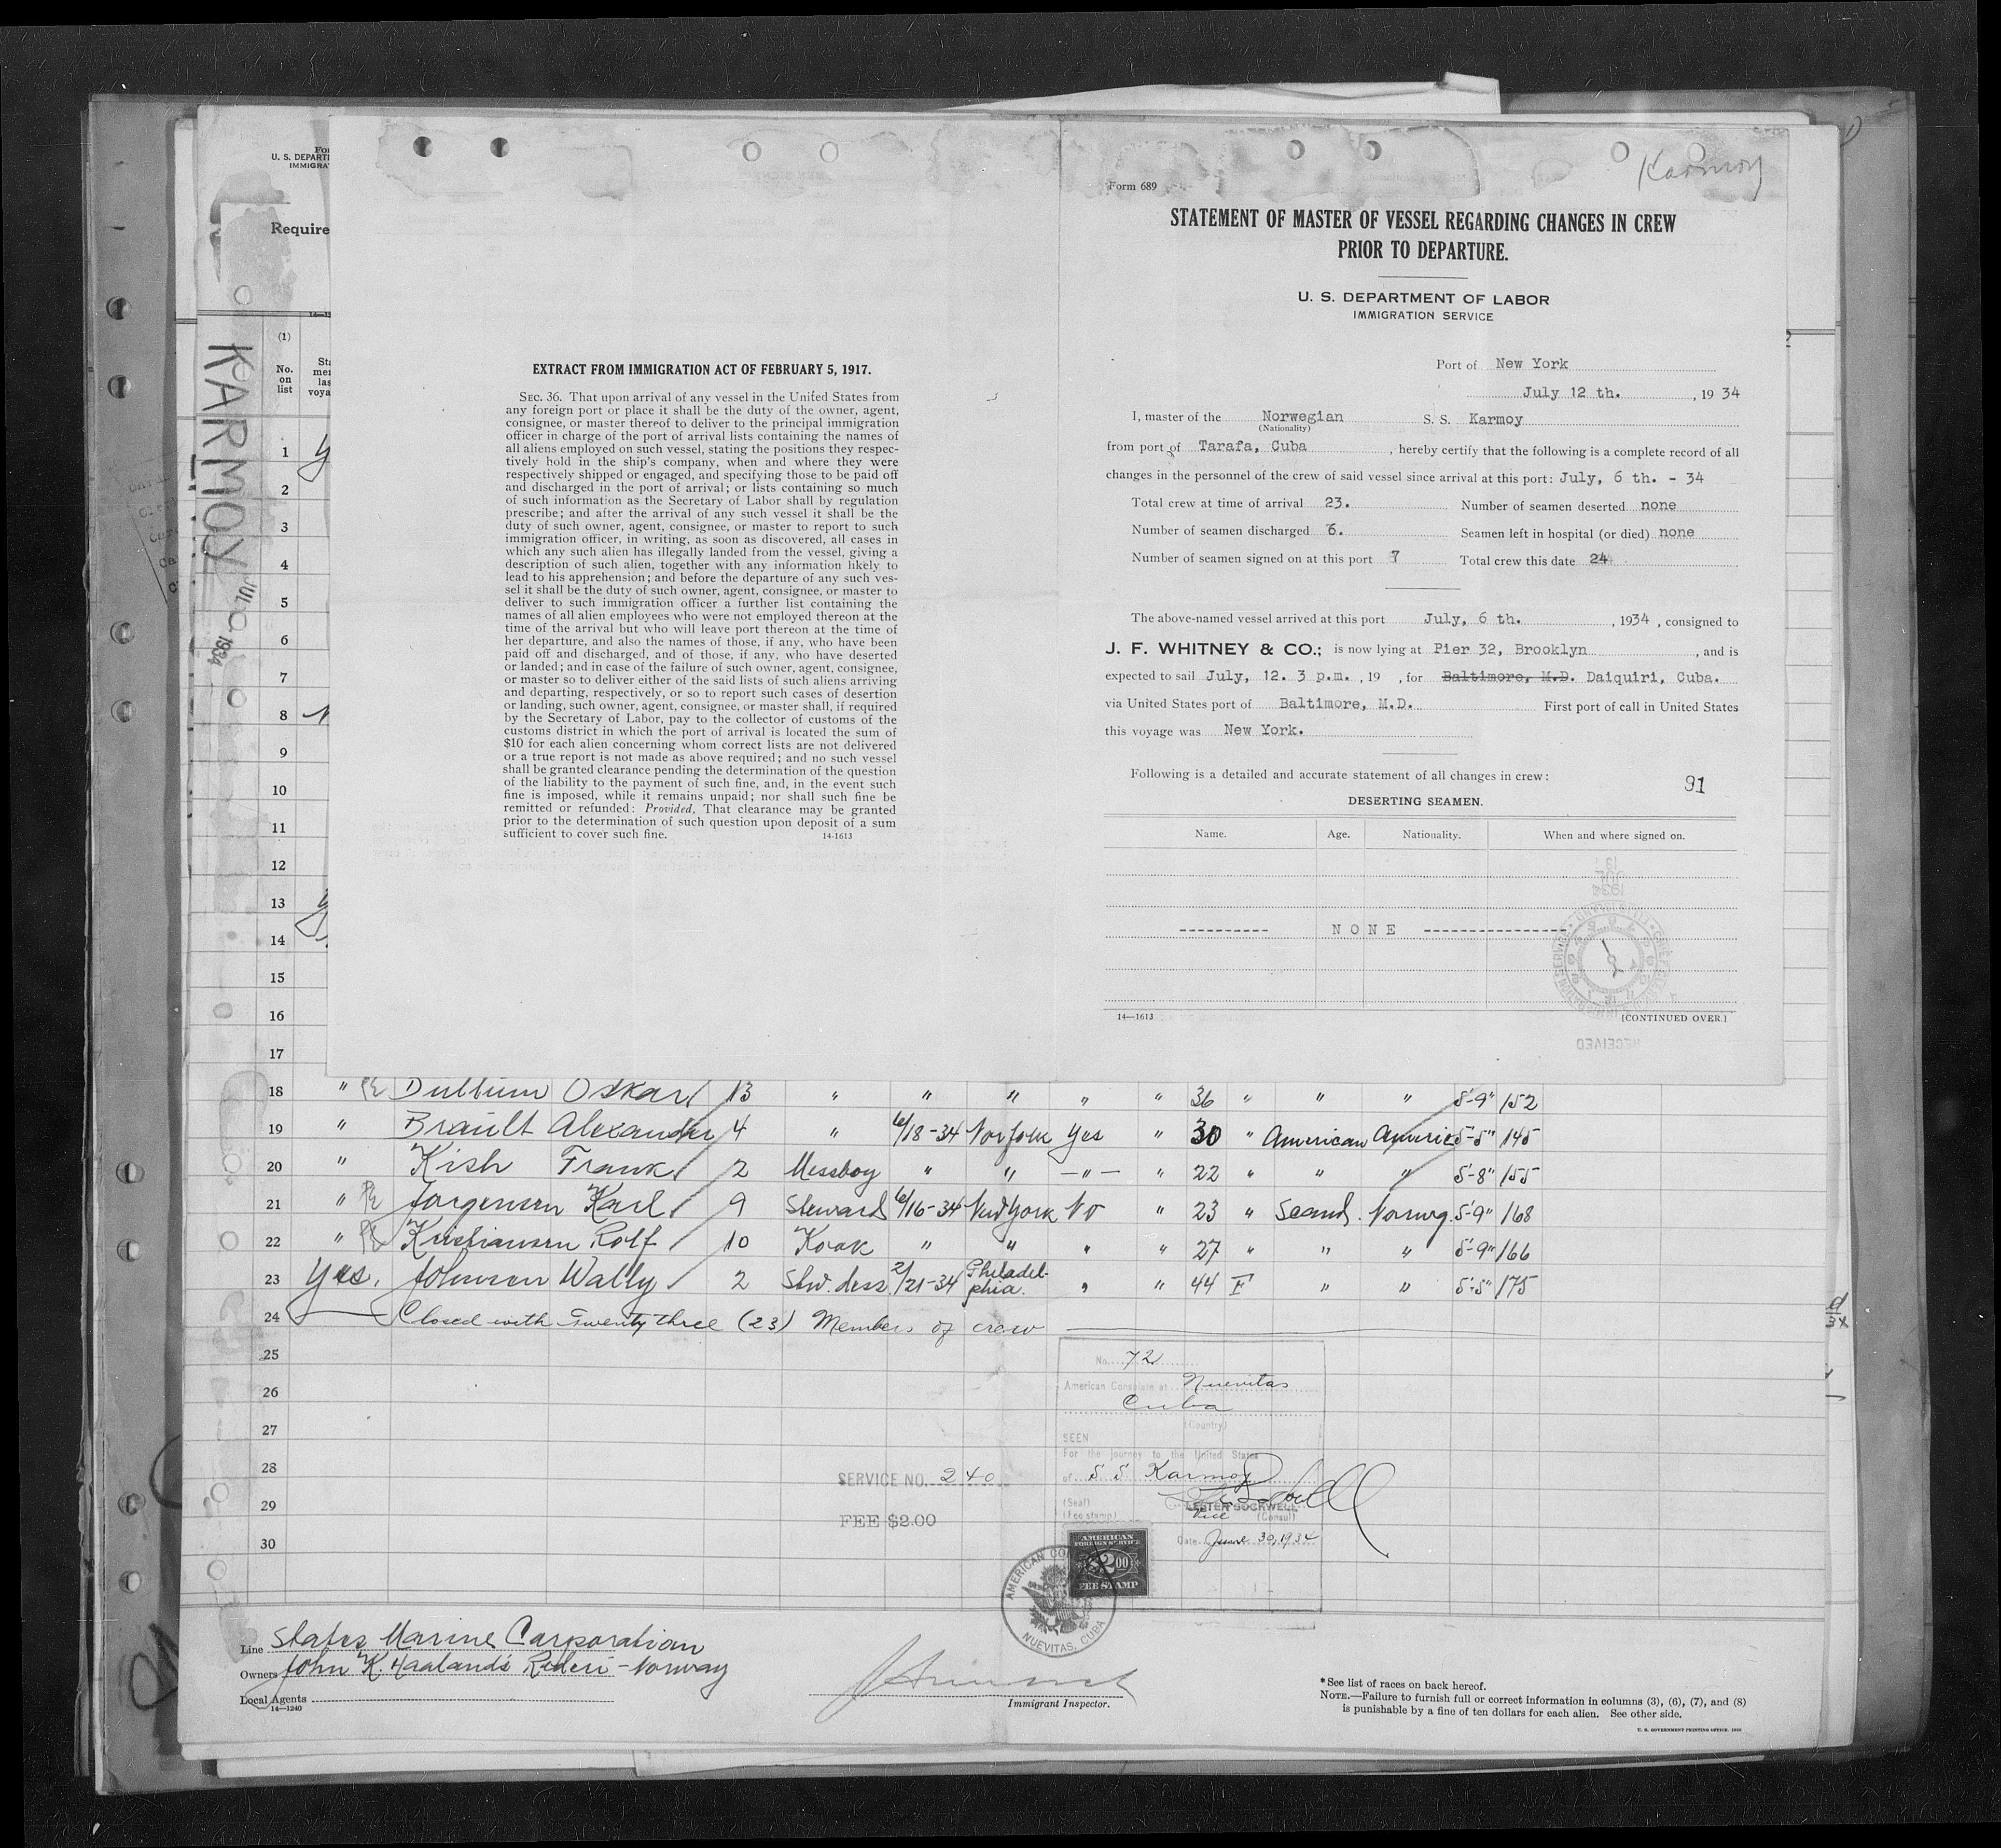 Form 689
Karmoy
STATEMENT OF MASTER OF VESSEL REGARDING CHANGES IN CREW
PRIOR TO DEPARTURE.
U. S. DEPARTMENT OF LABOR
IMMIGRATION SERVICE
Port of New York
July 12 th. , 19 34
I, master of the Norwegian S. S. Karmoy
(Nationality)
from port of Tarafa, Cuba , hereby certify that the following is a complete record of all
changes in the personnel of the crew of said vessel since arrival at this port: July, 6 th. - 34
Total crew at time of arrival 23. Number of seamen deserted none
Number of seamen discharged 6. Seamen left in hospital (or died) none
Number of seamen signed on at this port 7 Total crew this date 24
The above-named vessel arrived at this port July, 6 th. , 1934 , consigned to
J. F. WHITNEY & CO.; is now lying at Pier 32, Brooklyn , and is
expected to sail July, 12. 3 p.m. , 19 , for Baltimore, M.D. Daiquiri, Cuba.
via United States port of Baltimore, M.D. First port of call in United States
this voyage was New York.
Following is a detailed and accurate statement of all changes in crew:
91
DESERTING SEAMEN.
Name. Age. Nationality. When and where signed on.
---------- N O N E ----------------
14—1613
[CONTINUED OVER.]
RECEIVED
EXTRACT FROM IMMIGRATION ACT OF FEBRUARY 5, 1917.
SEC. 36. That upon arrival of any vessel in the United States from
any foreign port or place it shall be the duty of the owner, agent,
consignee, or master thereof to deliver to the principal immigration
officer in charge of the port of arrival lists containing the names of
all aliens employed on such vessel, stating the positions they respec-
tively hold in the ship's company, when and where they were
respectively shipped or engaged, and specifying those to be paid off
and discharged in the port of arrival; or lists containing so much
of such information as the Secretary of Labor shall by regulation
prescribe; and after the arrival of any such vessel it shall be the
duty of such owner, agent, consignee, or master to report to such
immigration officer, in writing, as soon as discovered, all cases in
which any such alien has illegally landed from the vessel, giving a
description of such alien, together with any information likely to
lead to his apprehension; and before the departure of any such ves-
sel it shall be the duty of such owner, agent, consignee, or master to
deliver to such immigration officer a further list containing the
names of all alien employees who were not employed thereon at the
time of the arrival but who will leave port thereon at the time of
her departure, and also the names of those, if any, who have been
paid off and discharged, and of those, if any, who have deserted
or landed; and in case of the failure of such owner, agent, consignee,
or master so to deliver either of the said lists of such aliens arriving
and departing, respectively, or so to report such cases of desertion
or landing, such owner, agent, consignee, or master shall, if required
by the Secretary of Labor, pay to the collector of customs of the
customs district in which the port of arrival is located the sum of
$10 for each alien concerning whom correct lists are not delivered
or a true report is not made as above required; and no such vessel
shall be granted clearance pending the determination of the question
of the liability to the payment of such fine, and, in the event such
fine is imposed, while it remains unpaid; nor shall such fine be
remitted or refunded: Provided, That clearance may be granted
prior to the determination of such question upon deposit of a sum
sufficient to cover such fine. 14-1613
U. S. DEPARTI
IMMIGRA
Require
KARMOY
JUL 1934
(1)
No. on list
1
2
3
4
5
6
7
8
9
10
11
12
13
14
15
16
17
18 " Oskar 13 " " " " " 36 " " " 5'-9" 152
19 " Brault Alexander 4 " 6/18-34 Norfolk Yes " 30 " American Americ 5'-5" 145
20 " Kish Frank 2 Messboy " " —"— " 22 " " " 5'-8" 155
21 " Jorgensen Karl 9 Steward 6/16-34 New York No " 23 " Scand. Norwg. 5'-9" 168
22 " Kristiansen Rolf 10 Kook " " " " 27 " " " 5'-9" 166
23 Yes. Johnson Wally 2 Stw. dess. 2/21-34 Philadelphia. " " 44 F " " 5'-5" 175
24 Closed with Twenty three (23) Members of crew
25
26
27
28
29
30
No. 72
American Consulate at Nuevitas
Cuba
(Country)
SEEN
For the journey to the United States
of S S Karmoy
(Seal)
(Fee stamp)
LESTER SOCKWELL
Vice (Consul)
Date June 30, 1934
SERVICE NO. 240
FEE $2.00
AMERICAN
FOREIGN SERVICE
$2.00
FEE STAMP
NUEVITAS, CUBA
Line States Marine Corporation
Owners John K. Haaland's Rederi - Norway
Local Agents
14—1240
Immigrant Inspector.
* See list of races on back hereof.
NOTE.—Failure to furnish full or correct information in columns (3), (6), (7), and (8)
is punishable by a fine of ten dollars for each alien. See other side.
U. S. GOVERNMENT PRINTING OFFICE